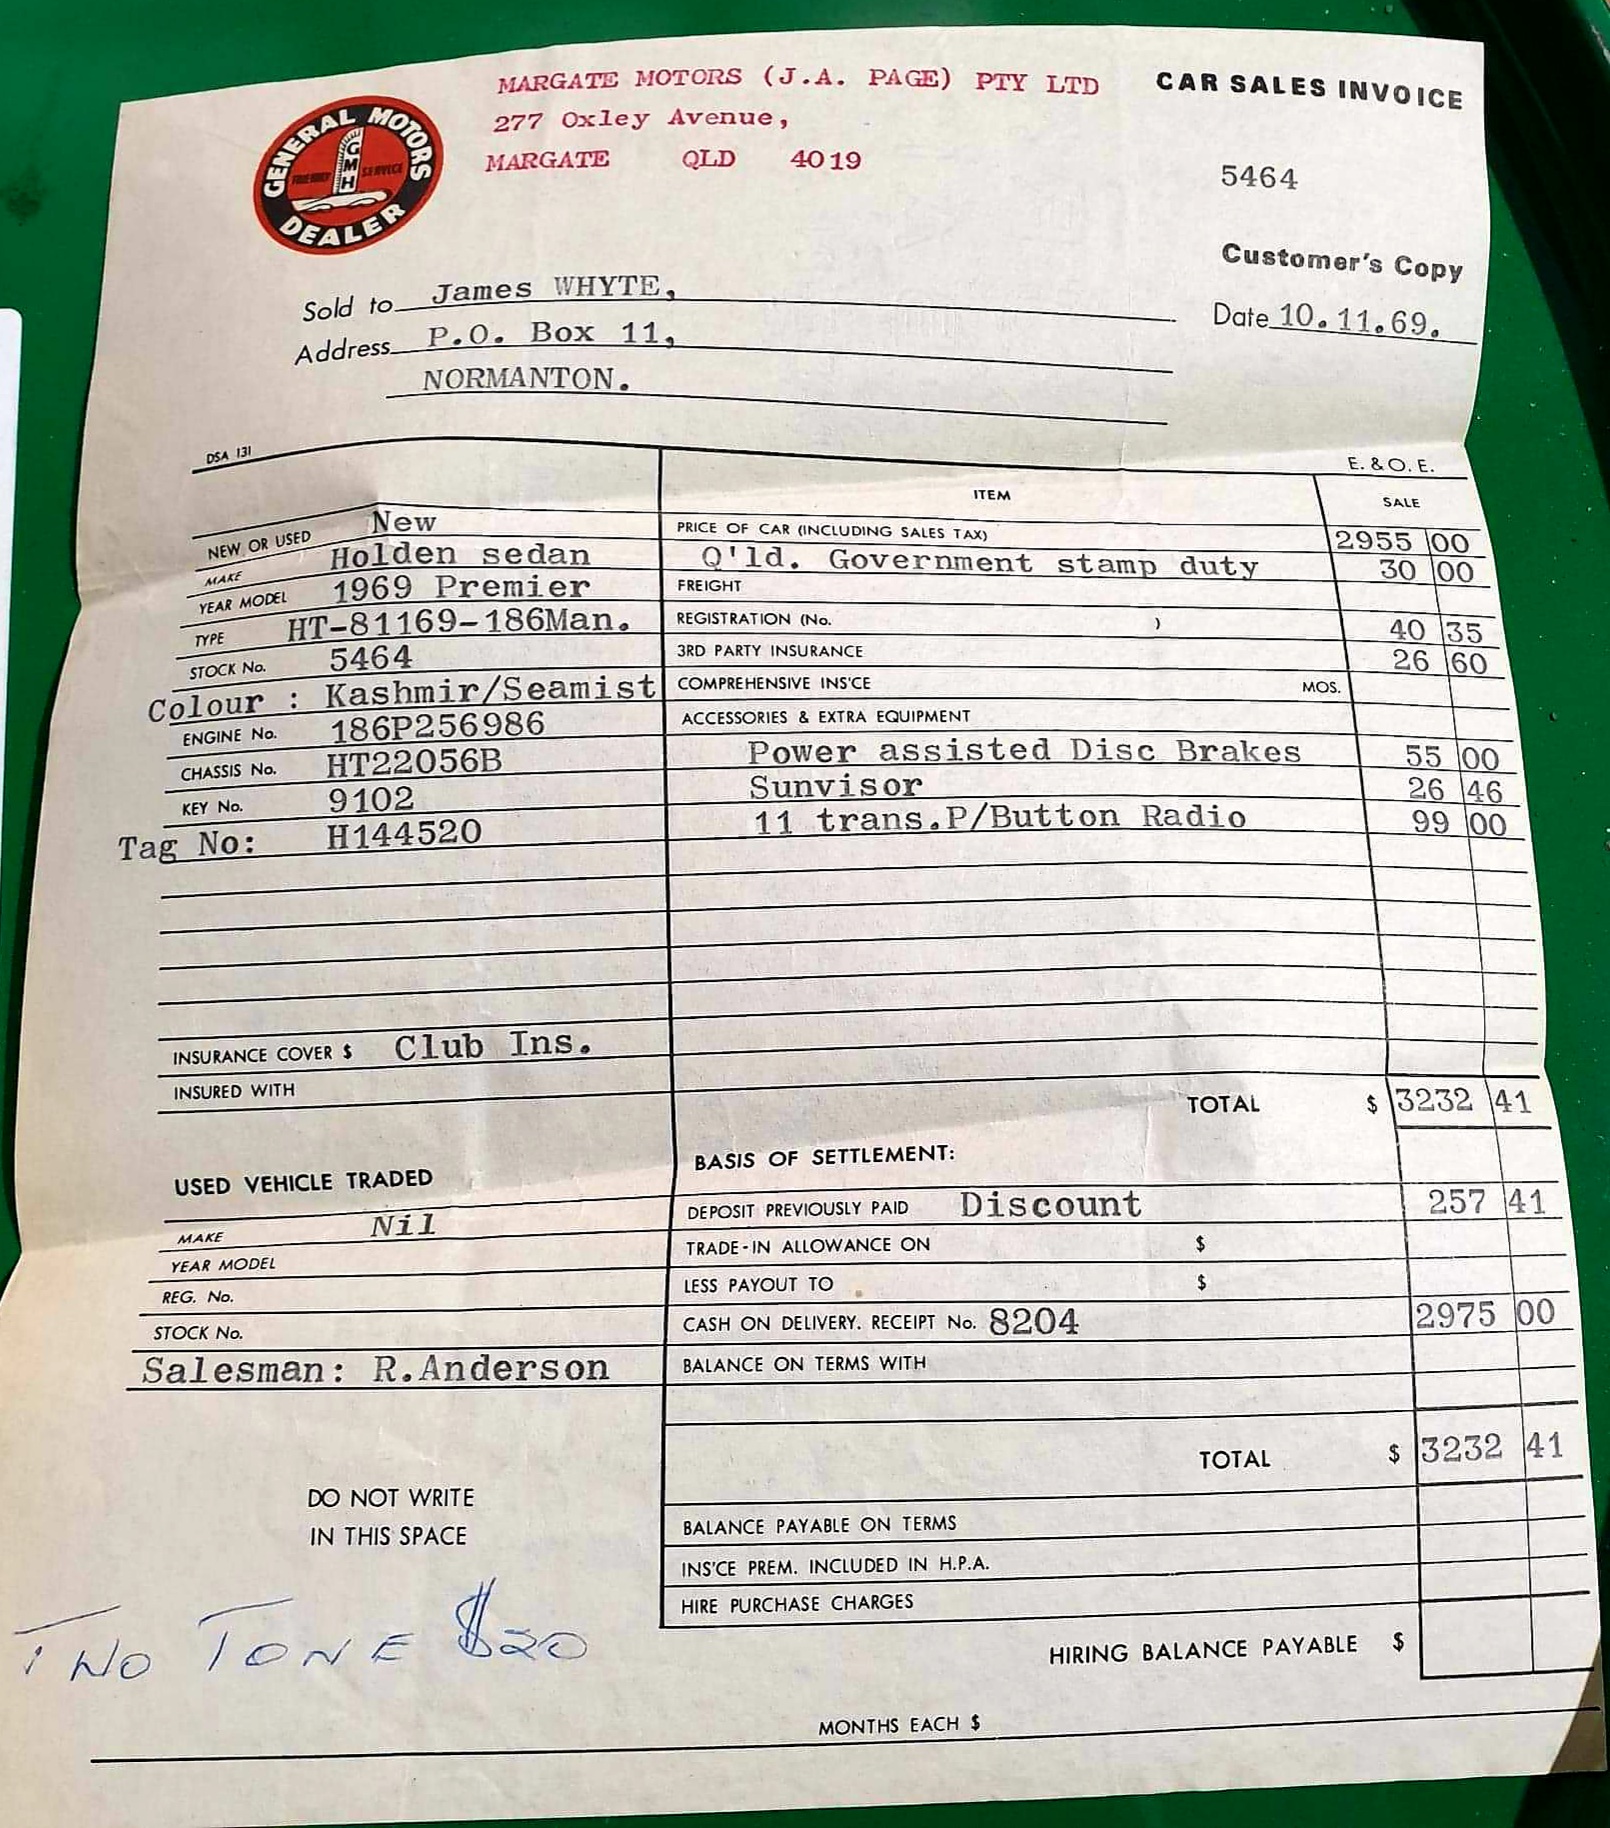 GENERAL MOTORS DEALER
FRIENDLY GMH SERVICE
MARGATE MOTORS (J.A. PAGE) PTY LTD
277 Oxley Avenue,
MARGATE QLD 4019
CAR SALES INVOICE
5464
Customer's Copy
Sold to James WHYTE,
Date 10.11.69.
Address P.O. Box 11,
NORMANTON.
DSA 131
E. & O. E.
ITEM SALE
NEW OR USED New
PRICE OF CAR (INCLUDING SALES TAX) 2955 00
MAKE Holden sedan
Q'ld. Government stamp duty 30 00
YEAR MODEL 1969 Premier
FREIGHT
TYPE HT-81169-186Man.
REGISTRATION (No. ) 40 35
STOCK No. 5464
3RD PARTY INSURANCE 26 60
Colour : Kashmir/Seamist
COMPREHENSIVE INS'CE MOS.
ENGINE No. 186P256986
ACCESSORIES & EXTRA EQUIPMENT
CHASSIS No. HT22056B
Power assisted Disc Brakes 55 00
KEY No. 9102
Sunvisor 26 46
Tag No: H144520
11 trans.P/Button Radio 99 00
INSURANCE COVER $ Club Ins.
INSURED WITH
TOTAL $ 3232 41
USED VEHICLE TRADED
BASIS OF SETTLEMENT:
MAKE Nil
DEPOSIT PREVIOUSLY PAID Discount 257 41
YEAR MODEL
TRADE-IN ALLOWANCE ON $
REG. No.
LESS PAYOUT TO $
STOCK No.
CASH ON DELIVERY. RECEIPT No. 8204 2975 00
Salesman: R.Anderson
BALANCE ON TERMS WITH
TOTAL $ 3232 41
DO NOT WRITE
IN THIS SPACE
BALANCE PAYABLE ON TERMS
INS'CE PREM. INCLUDED IN H.P.A.
HIRE PURCHASE CHARGES
TWO TONE $20
HIRING BALANCE PAYABLE $
MONTHS EACH $